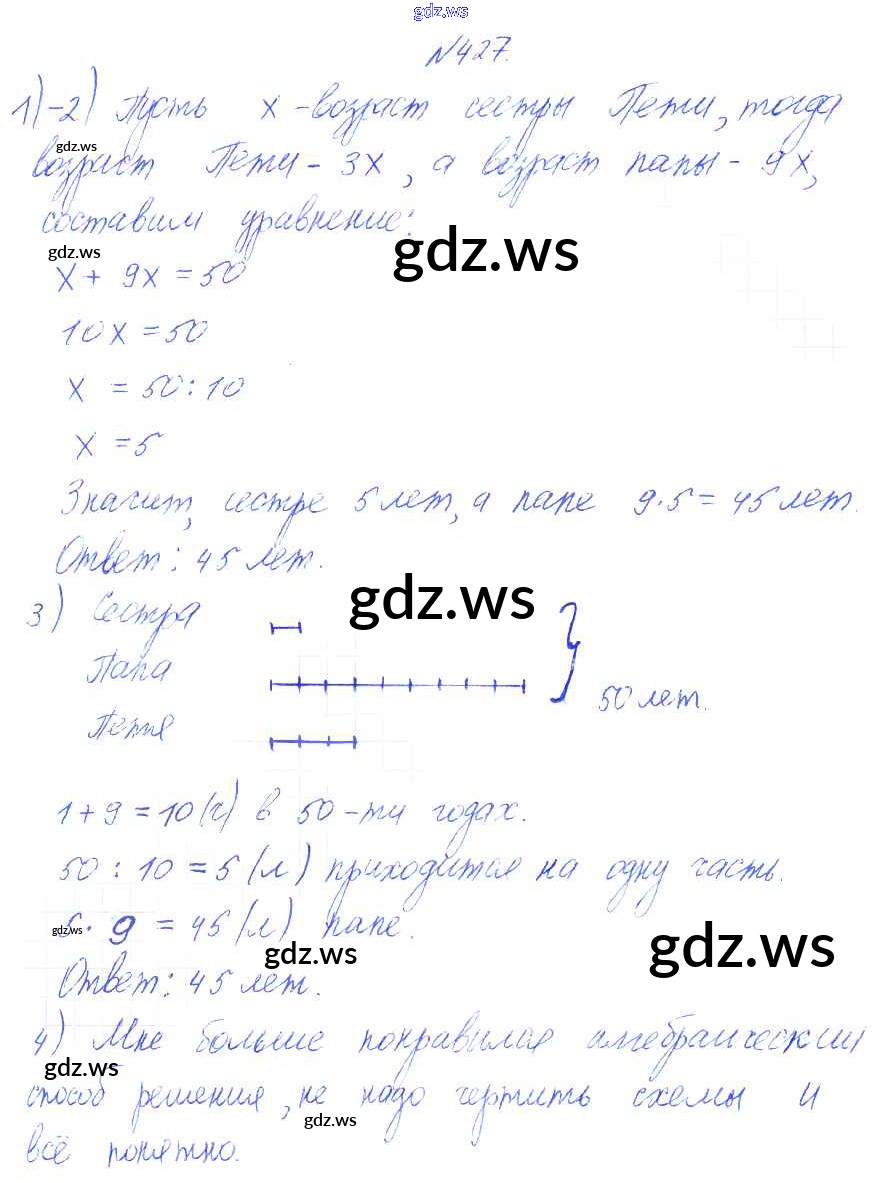 gdz.ws
№427.
1)-2) Пусть x - возраст сестры Пети, тогда
gdz.ws
возраст Пети - 3x, а возраст папы - 9x,
составим уравнение:
gdz.ws
gdz.ws
x + 9x = 50
10x = 50
x = 50 : 10
x = 5
Значит, сестре 5 лет, а папе 9·5 = 45 лет.
Ответ: 45 лет.
gdz.ws
3) Сестра
Папа
50 лет.
Петя
1 + 9 = 10 (ч) в 50-ти годах.
50 : 10 = 5 (л) приходится на одну часть.
gdz.ws
5 · 9 = 45 (л) папе.
gdz.ws
gdz.ws
Ответ: 45 лет.
4) Мне больше понравился алгебраический
gdz.ws
способ решения, не надо чертить схемы и
gdz.ws
всё понятно.